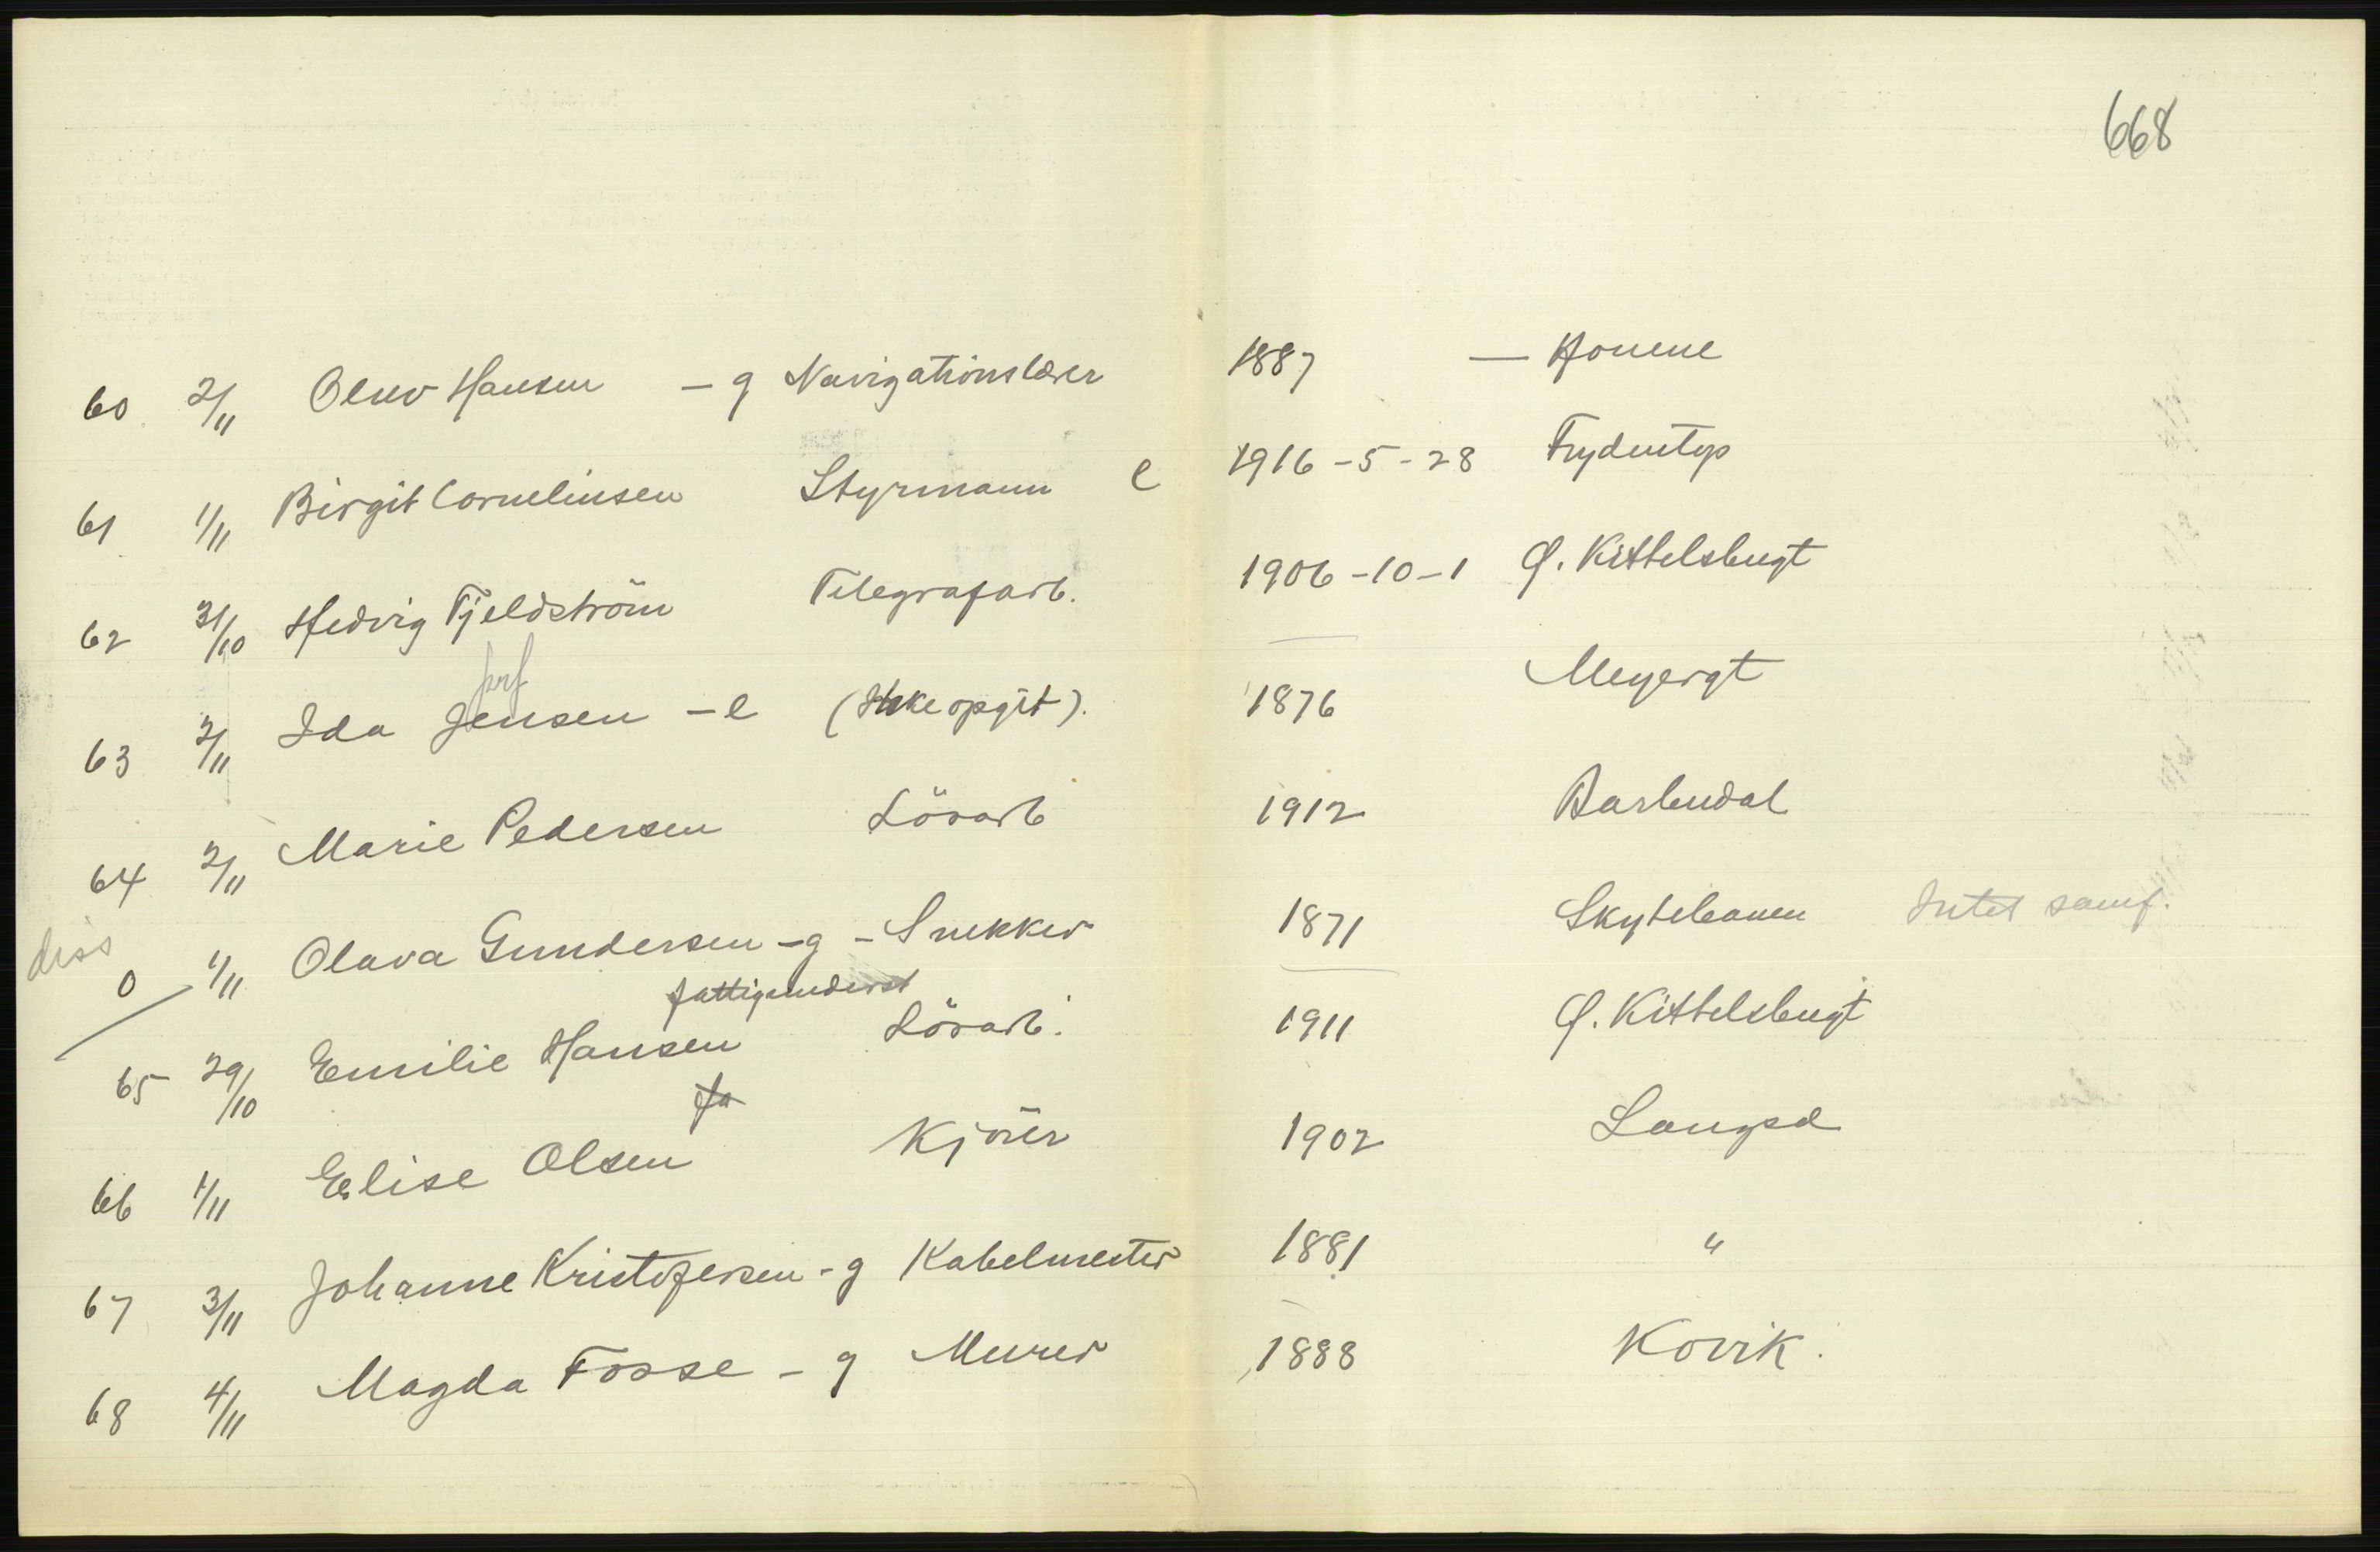 668
60 2/11 Oluv Hansen - g Navigationslærer 1887 — Honene
61 1/11 Birgit Corneliusen Styrmann e 1916-5-28 Frydentop
62 31/10 Hedvig Fjeldström Telegrafarb. 1906-10-1 Ø. Kittelsbugt
prf
63 2/11 Ida Jensen - e (Ikke opgit). 1876 Meyergt
64 2/11 Marie Pedersen Lösarb 1912 Barbudal
diss 0 1/11 Olava Gundersen - g - Snekker 1871 Skytebanen Intet samf.
fattigunderst
65 29/10 Emilie Hansen Lösarb. 1911 Ø. Kittelsbugt
fa
66 1/11 Elise Olsen Kjörer 1902 Langsd
67 3/11 Johanne Kristofersen - g Kabelmester 1881 "
68 4/11 Magda Fosse - g Murer 1888 Kovik.